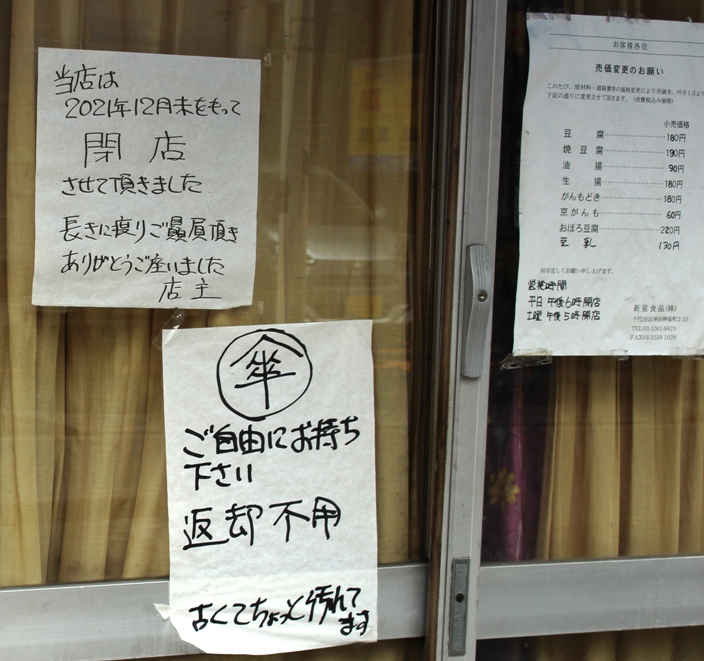 当店は
2021年12月末をもって
閉店
させて頂きました
長きに渡りご贔屓頂き
ありがとうご座いました
店主
傘
ご自由にお持ち
下さい
返却不用
古くてちょっと汚れて
ます
お客様各位
売価変更のお願い
このたび、原材料・諸経費等の価格変更により売価を、10月1日より
下記の通りに変更させて頂きます。(消費税込み価格)
小売価格
豆腐 180円
焼豆腐 190円
油揚 90円
生揚 180円
がんもどき 180円
京がんも 60円
おぼろ豆腐 220円
豆乳 130円
何卒宜しくお願い申し上げます。
営業時間
平日 午後6時閉店
土曜 午後5時閉店
新星食品(株)
千代田区神田神保町2-20
TEL03-3261-9470
FAX03-3234-1028